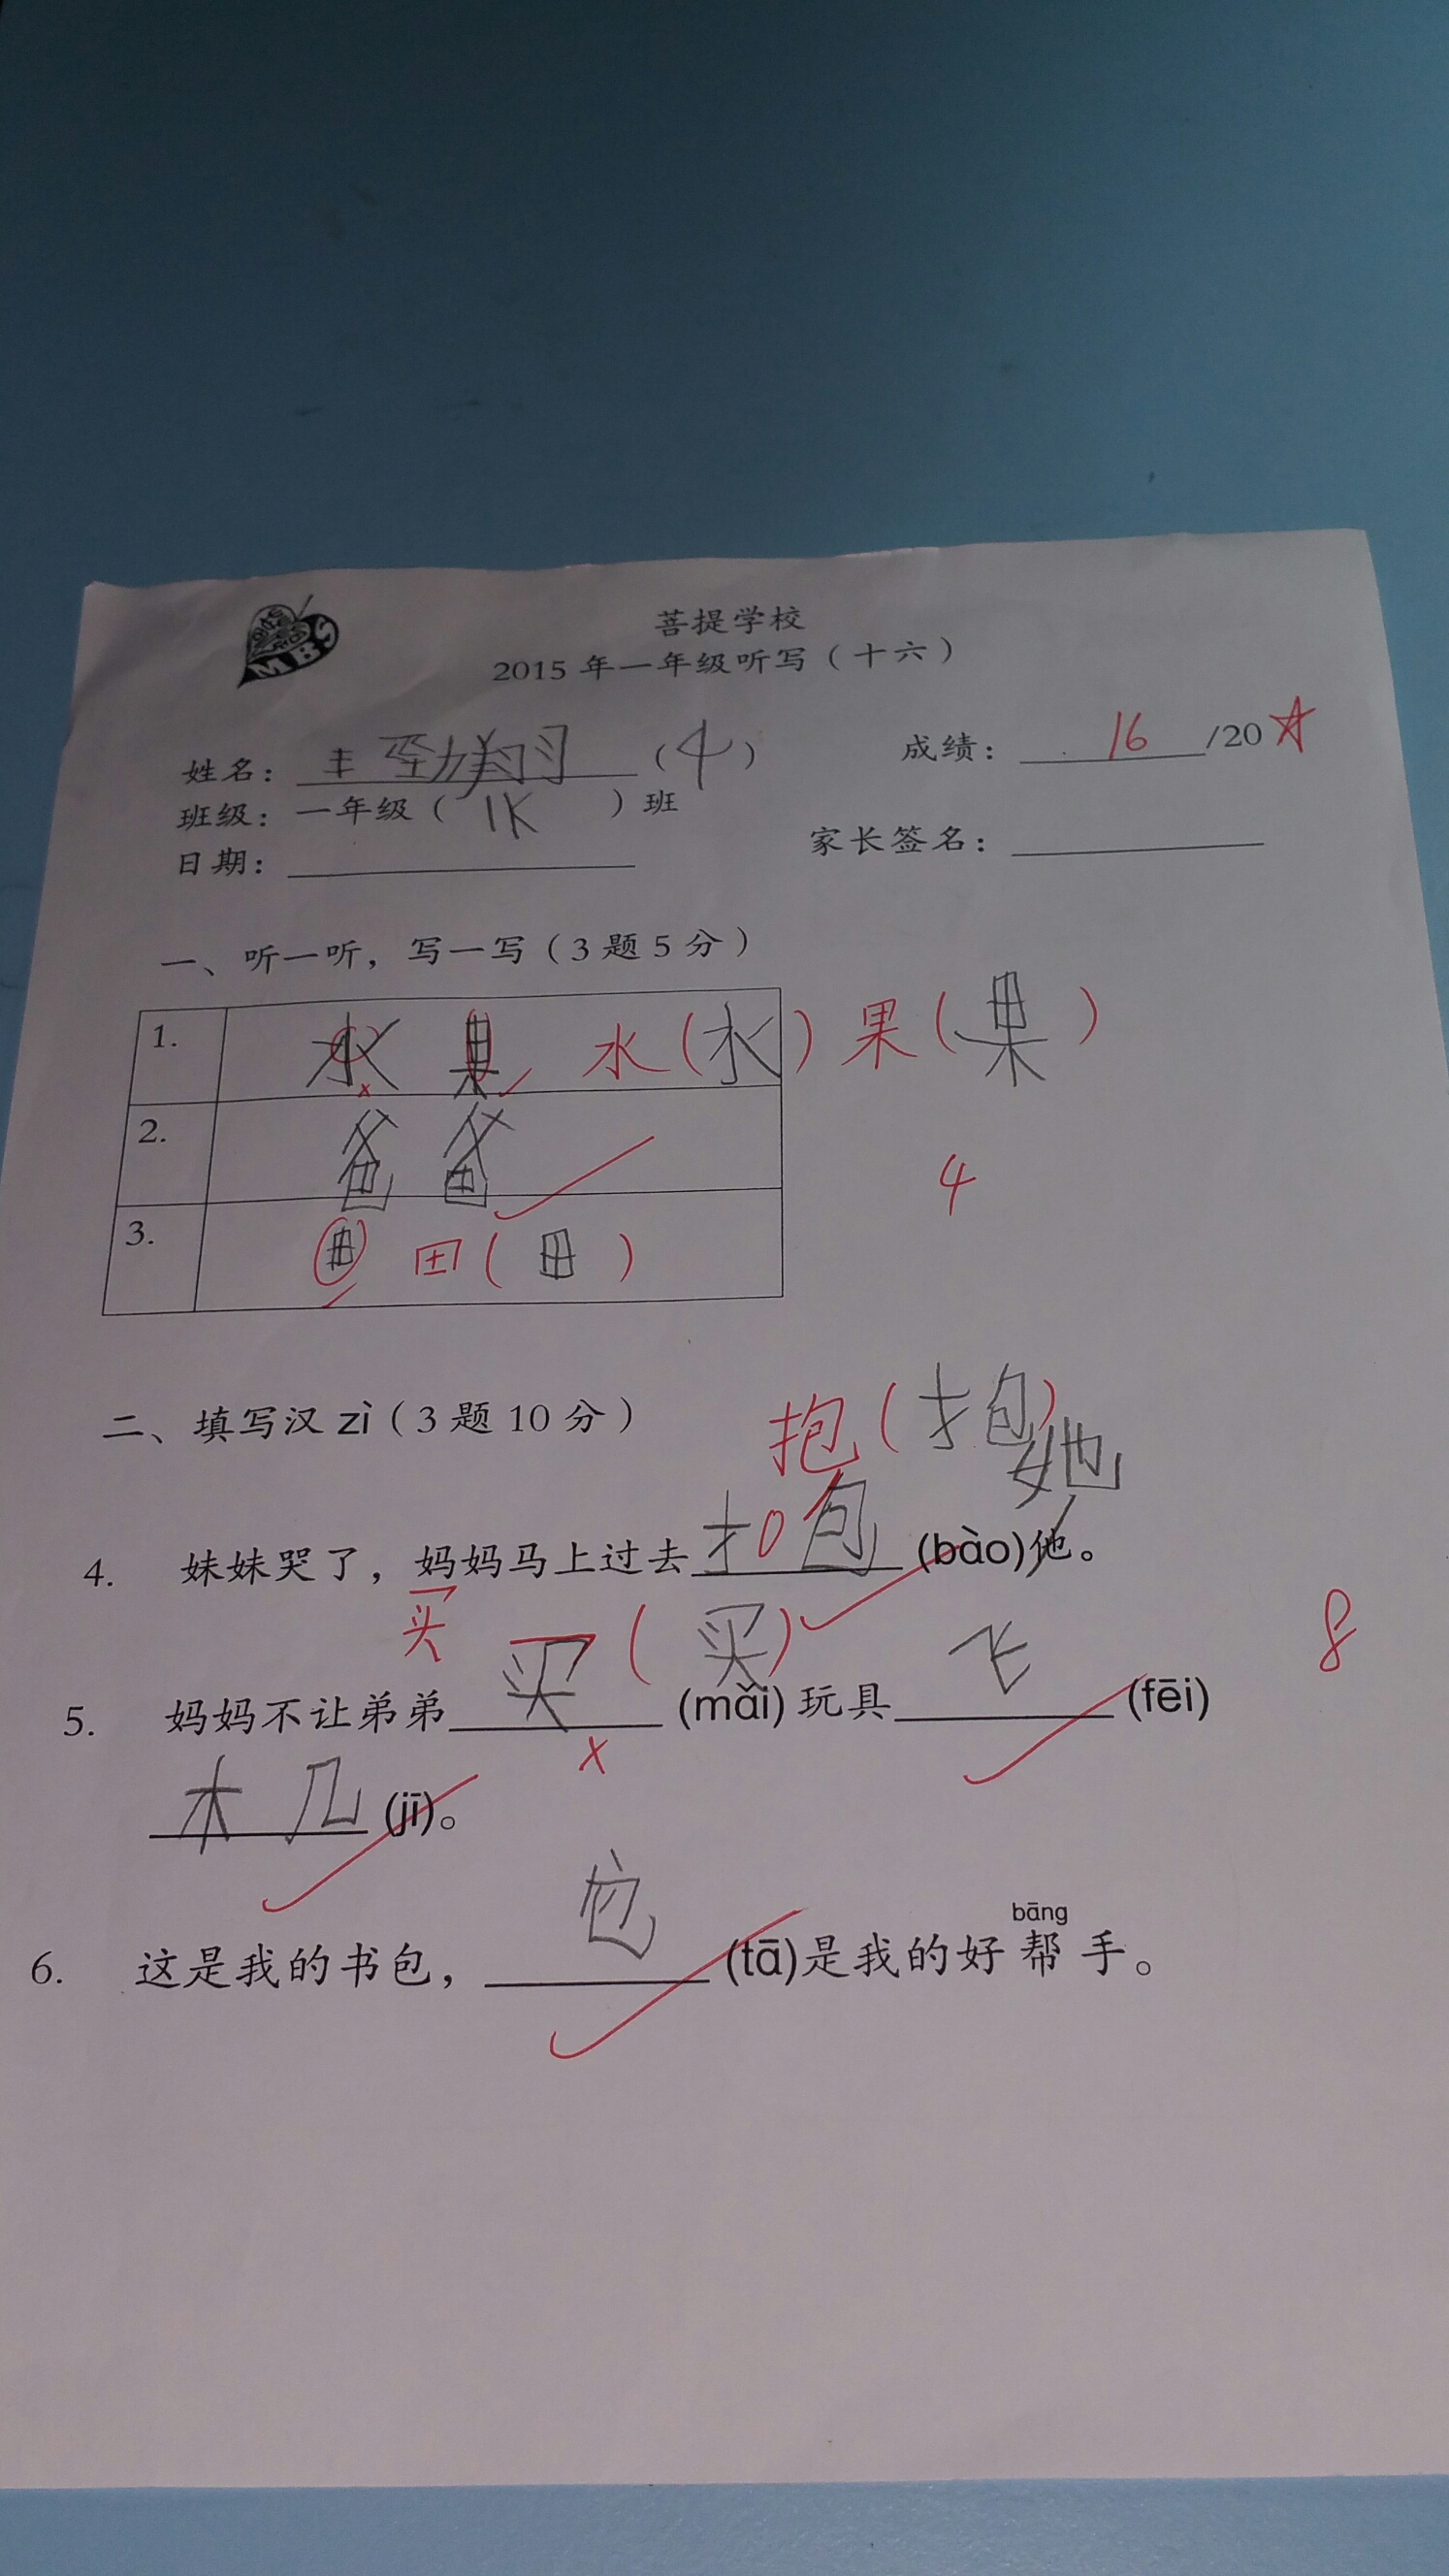 MBS
菩提学校
2015年一年级听写（十六）
姓名：王劲翔（4） 成绩：16/20
班级：一年级（1K）班
日期： 家长签名：
一、听一听，写一写（3题5分）
1. 水 果 水（水）果（果）
2. 爸爸
4
3. 田 田（田）
二、填写汉zì（3题10分）
抱（抱）
她
4. 妹妹哭了，妈妈马上过去抱(bào)他。
买（买）
8
5. 妈妈不让弟弟买(mǎi)玩具飞(fēi)
木几(jī)。
6. 这是我的书包，它(tā)是我的好帮(bāng)手。